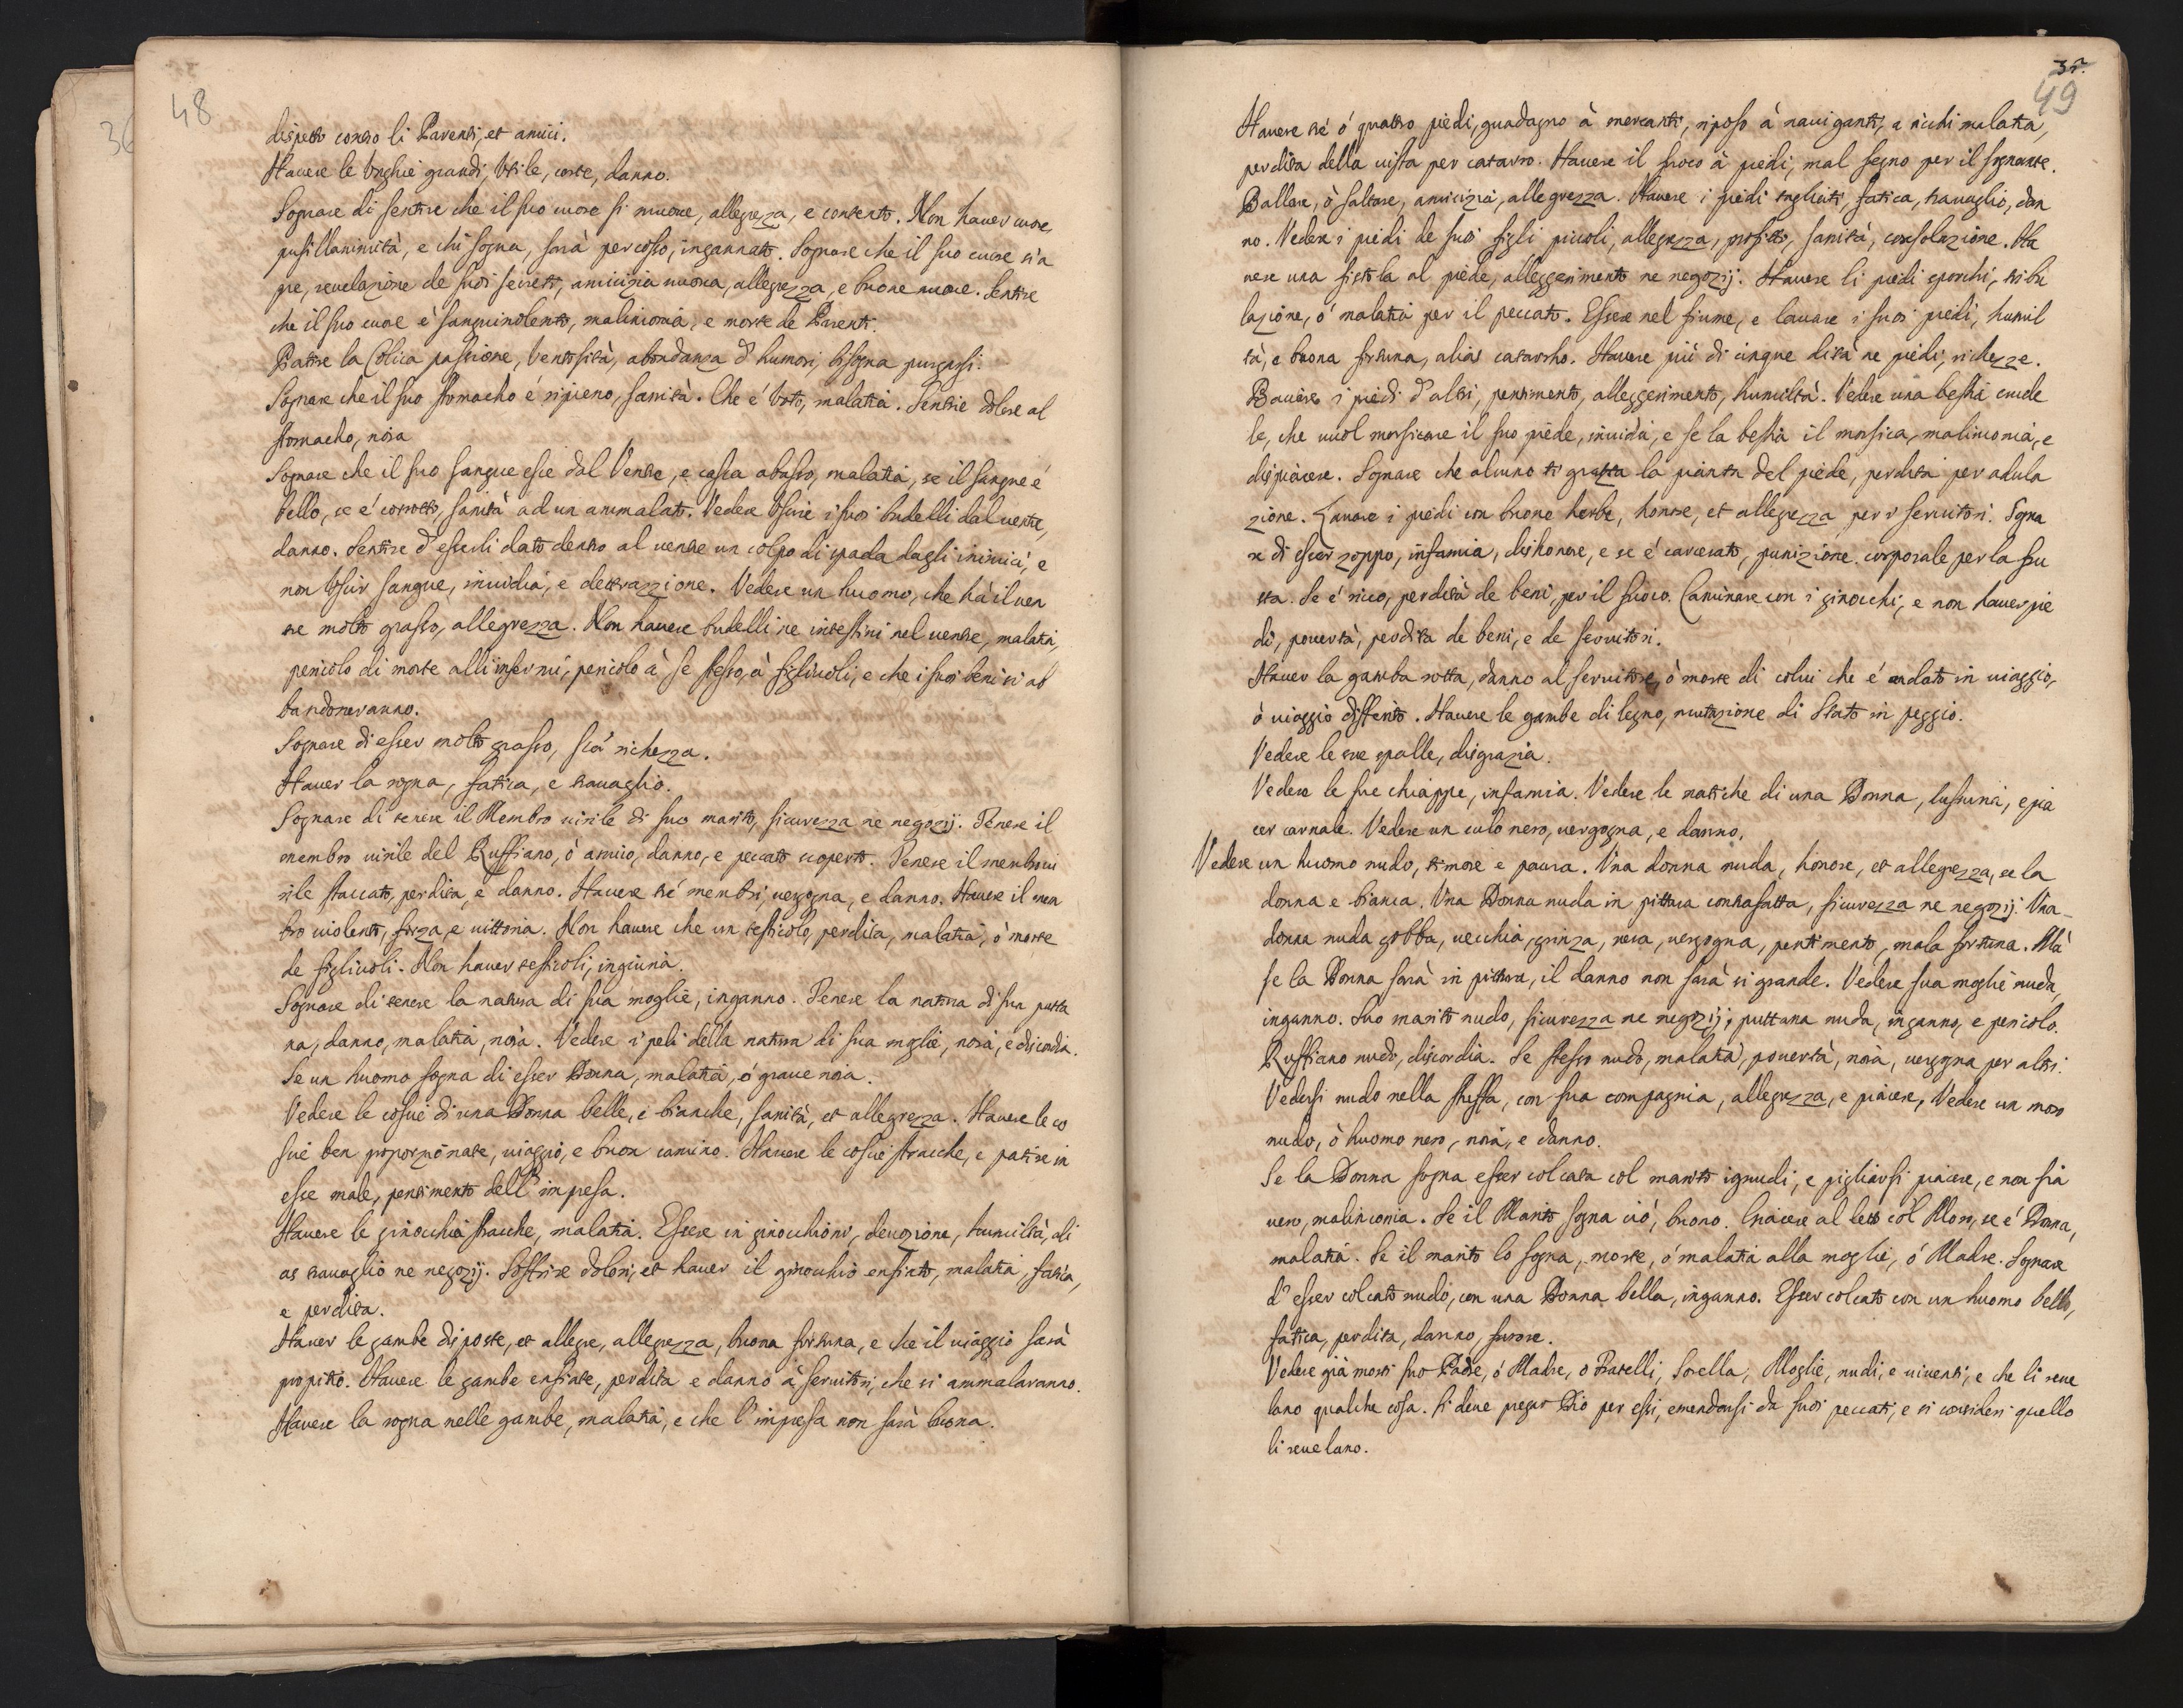 48
dispetto contro li Parenti, et amici.
Havere le Unghie grandi, Utile, corte, danno.
Sognare di sentire che il suo cuore si muove, allegrezza, e contento. Non haver cuore
pusillanimità, e chi sogna, sarà percosso, ingannato. Sognare che il suo cuore s'a
pre, revelazione de suoi secreti, amicizia nuova, allegrezza, e buone nuove. Sentire
che il suo cuore è sanguinolento, malinconia, e morte de Parenti.
Patire la Colica passione, Ventosità, abondanza d'humori, bisogna purgarsi.
Sognare che il suo stomacho é ripieno, sanità. Che é Voto, malatia. Sentire dolore al
stomacho, noia
Sognare che il suo sangue esce dal Ventre, e casca abasso, malatia, se il sangue é
bello, se é corrotto, sanità ad un ammalato. Vedere Uscire i suoi budelli dal ventre,
danno. Sentire d'esserli dato dentro al ventre un colpo di spada dagli inimici, e
non Uscir sangue, invidia, e detrazzione. Vedere un huomo, che hà il ven
tre molto grasso, allegrezza. Non havere budelli ne intestini nel ventre, malatia,
pericolo di morte alli infermi, pericolo à se stesso, à figliuoli, e che i suoi beni si ab
bandoneranno.
Sognare di esser molto grasso, sia richezza.
Haver la rogna, fatica, e travaglio.
Sognare di tenere il Membro virile di suo marito, sicurezza ne negozij. Tenere il
membro virile del Ruffiano, ò amico, danno, e peccato scoperto. Tenere il membro vi
rile staccato, perdita, e danno. Havere tré membri, vergogna, e danno. Havere il mem
bro violento, forza, e vittoria. Non havere che un testicolo, perdita, malatia, ò morte
de figliuoli. Non haver testicoli, ingiuria.
Sognare di tenere la natura di sua moglie, inganno. Tenere la natura di sua putta
na, danno, malatia, noia. Vedere i peli della natura di sua moglie, noia, e discordia.
Se un huomo sogna di esser Donna, malatia, ó grave noia.
Vedere le coscie di una Donna belle, e bianche, sanità, et allegrezza. Havere le co
scie ben proporzionate, viaggio, e buon camino. Havere le coscie stracche, e patire in
esse male, pentimento dell'impresa.
Havere le ginocchia stracche, malatia. Essere in ginocchioni, devozione, humiltà, ali
as travaglio ne negozij. Soffrire dolori, et haver il ginocchio enfiato, malatia, fatica,
e perdita.
Haver le gambe disposte, et allegre, allegrezza, buona fortuna, e che il viaggio sarà
propitio. Havere le gambe enfiate, perdita e danno à servitori, che si ammalaranno.
Havere la rogna nelle gambe, malatia, e che l'impresa non sarà buona.
49
Havere tré ó quattro piedi, guadagno à mercanti, riposo à naviganti, a ricchi malatia,
perdita della vista per catarro. Havere il fuoco à piedi, mal segno per il sognante.
Ballare, ò saltare, amicizia, allegrezza. Havere i piedi tagliati, fatica, travaglio, dan
no. Vedere i piedi de suoi figli piccoli, allegrezza, profitto, sanità, consolazione. Ha
vere una fistola al piede, alleggerimento ne negozij. Havere li piedi sporchi, tribu
lazione, ó malatia per il peccato. Essere nel fiume, e lavare i suoi piedi, humil
tà, e buona fortuna, alias catarrho. Havere più di cinque dita ne piedi, richezze.
Baciare i piedi d'altri, pentimento, alleggerimento, humiltà. Vedere una bestia crude
le, che vuol morsicare il suo piede, invidia, e se la bestia il morsica, malinconia, e
dispiacere. Sognare che alcuno ti gratta la pianta del piede, perdita per adula
zione. Lavare i piedi con buone herbe, honore, et allegrezza per i servitori. Sogna
re di esser zoppo, infamia, dishonore, e se é carcerato, punizione corporale per la fru
sta. Se é ricco, perdita de beni, per il fuoco. Caminare con i ginocchi, e non haver pie
di, povertà, perdita de beni, e de servitori.
Haver la gamba rotta, danno al servitore, ò morte di colui che é andato in viaggio,
ò viaggio differito. Havere le gambe di legno, mutazione di Stato in peggio.
Vedere le sue spalle, disgrazia.
Vedere le sue chiappe, infamia. Vedere le natiche di una Donna, lussuria, e pia
cer carnale. Vedere un culo nero, vergogna, e danno.
Vedere un huomo nudo, timore e paura. Una donna nuda, honore, et allegrezza, se la
donna e bianca. Una Donna nuda in pittura contrafatta, sicurezza ne negozij. Una
donna nuda gobba, vecchia, grinza, nera, vergogna, pentimento, mala fortuna. Mà
se la Donna sarà in pittura, il danno non sarà si grande. Vedere sua moglie nuda,
inganno. Suo marito nudo, sicurezza ne negozij, puttana nuda, inganno, e pericolo.
Ruffiano nudo, discordia. Se stesso nudo, malatia, povertà, noia, vergogna per altri.
Vedersi nudo nella stuffa, con sua compagnia, allegrezza, e piacere, Vedere un moro
nudo, ò huomo nero, noia, e danno.
Se la Donna sogna esser colcata col marito ignudi, e pigliarsi piacere, e non sia
vero, malinconia. Se il Marito sogna ciò, buono. Giacere al letto col Moro, se é Donna,
malatia. Se il marito lo sogna, morte, ó malatia alla moglie, ó Madre. Sognare
d'esser colcato nudo, con una Donna bella, inganno. Esser colcato con un huomo bello,
fatica, perdita, danno, furore.
Vedere già morti suo Padre, ó Madre, o Fratelli, Sorella, Moglie, nudi, e viventi, e che li reve
lano qualche cosa. Si deve pregar Dio per essi, emendarsi da suoi peccati, e si consideri quello
li revelano.